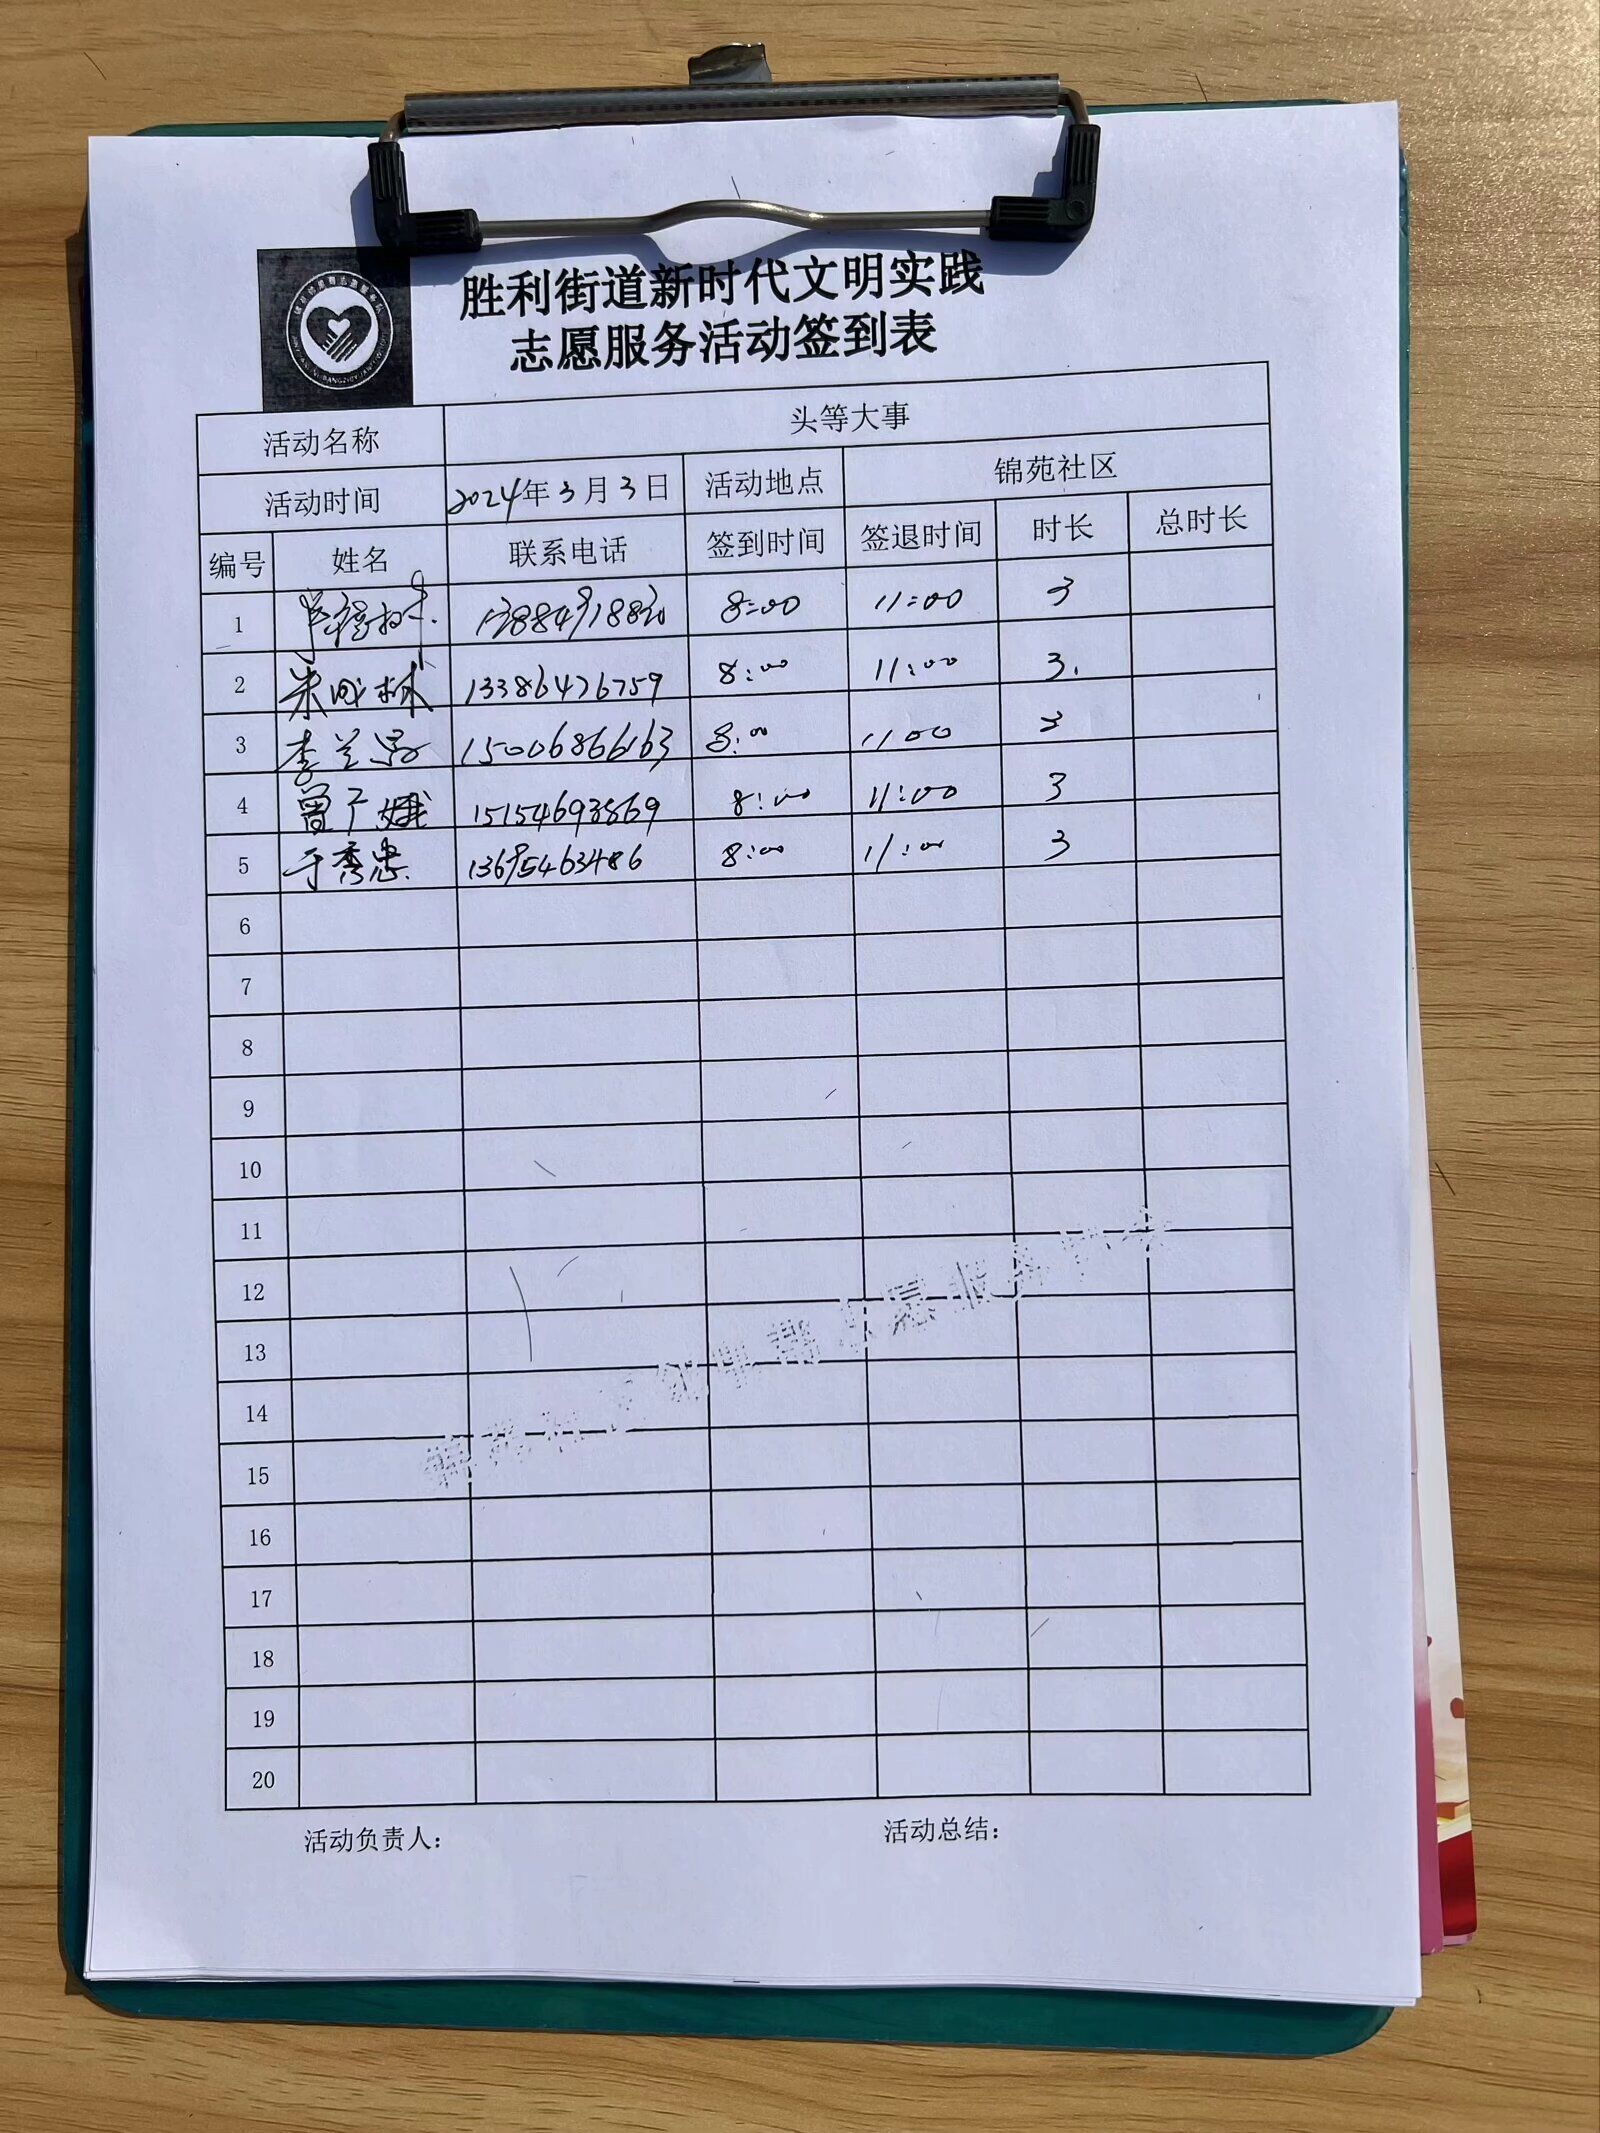 胜利街道新时代文明实践
志愿服务活动签到表
活动名称 头等大事
活动时间 2024年3月3日 活动地点 锦苑社区
编号 姓名 联系电话 签到时间 签退时间 时长 总时长
1 8:00 11:00 3
2 朱成林 13386476759 8:00 11:00 3.
3 李兰 15006866163 8:00 11 00 3
4 曾广娥 15154693869 8:00 11:00 3
5 于秀忠. 13695463486 8:00 11:00 3
6
7
8
9
10
11
12
13
14
15
16
17
18
19
20
活动负责人: 活动总结: